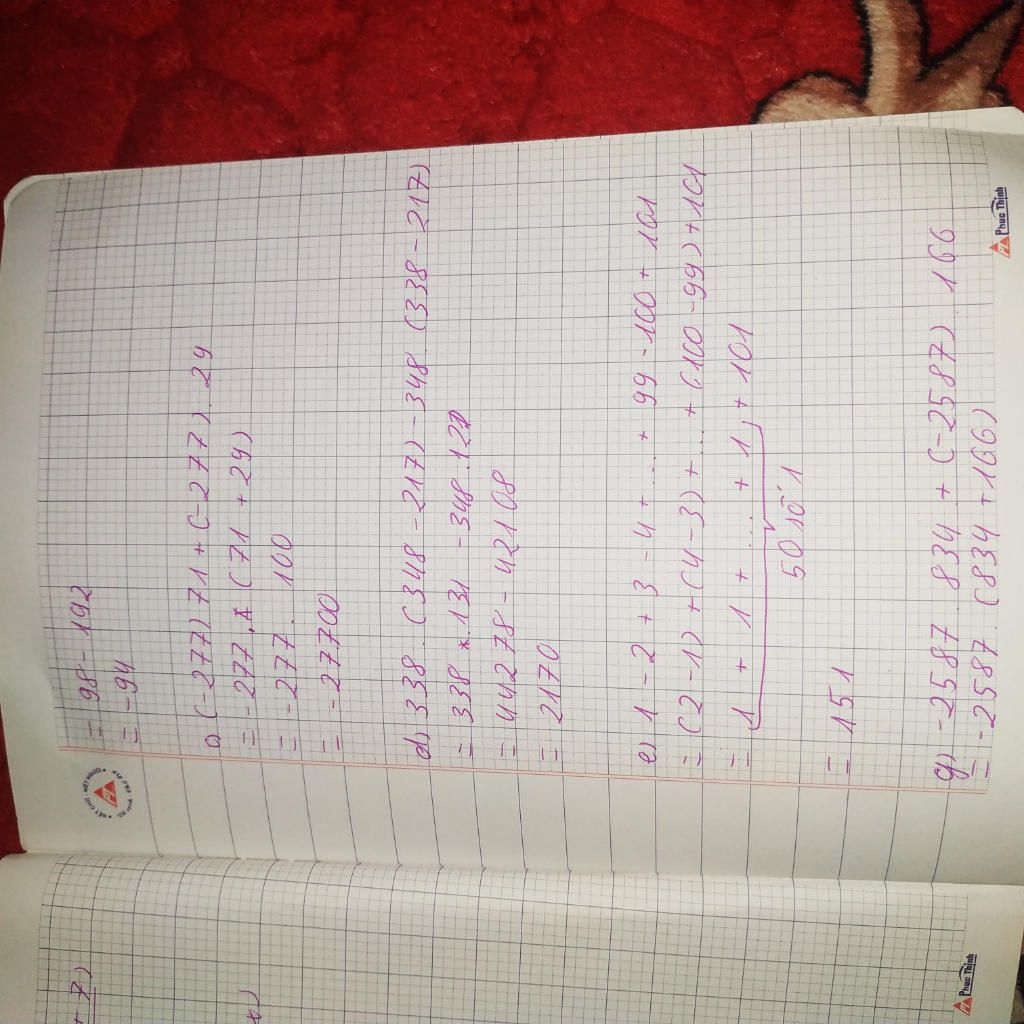 = 98 - 192
= -94
c) (-277) 71 + (-277). 29
= -277. (71 + 29)
= -277. 100
= -27700
d) 338. (348 - 217) - 348. (338 - 217)
= 338 . 131 - 348. 121
= 44278 - 42108
= 2170
e) 1 - 2 + 3 - 4 + ... + 99 - 100 + 101
= (2 - 1) + (4 - 3) + ... + (100 - 99) + 101
= 1 + 1 + ... + 1 + 101
50 số 1
= 151
g) -2587. 834 + (-2587). 166
= -2587. (834 + 166)
Phuc Thinh
+ 7)
Phuc Thinh